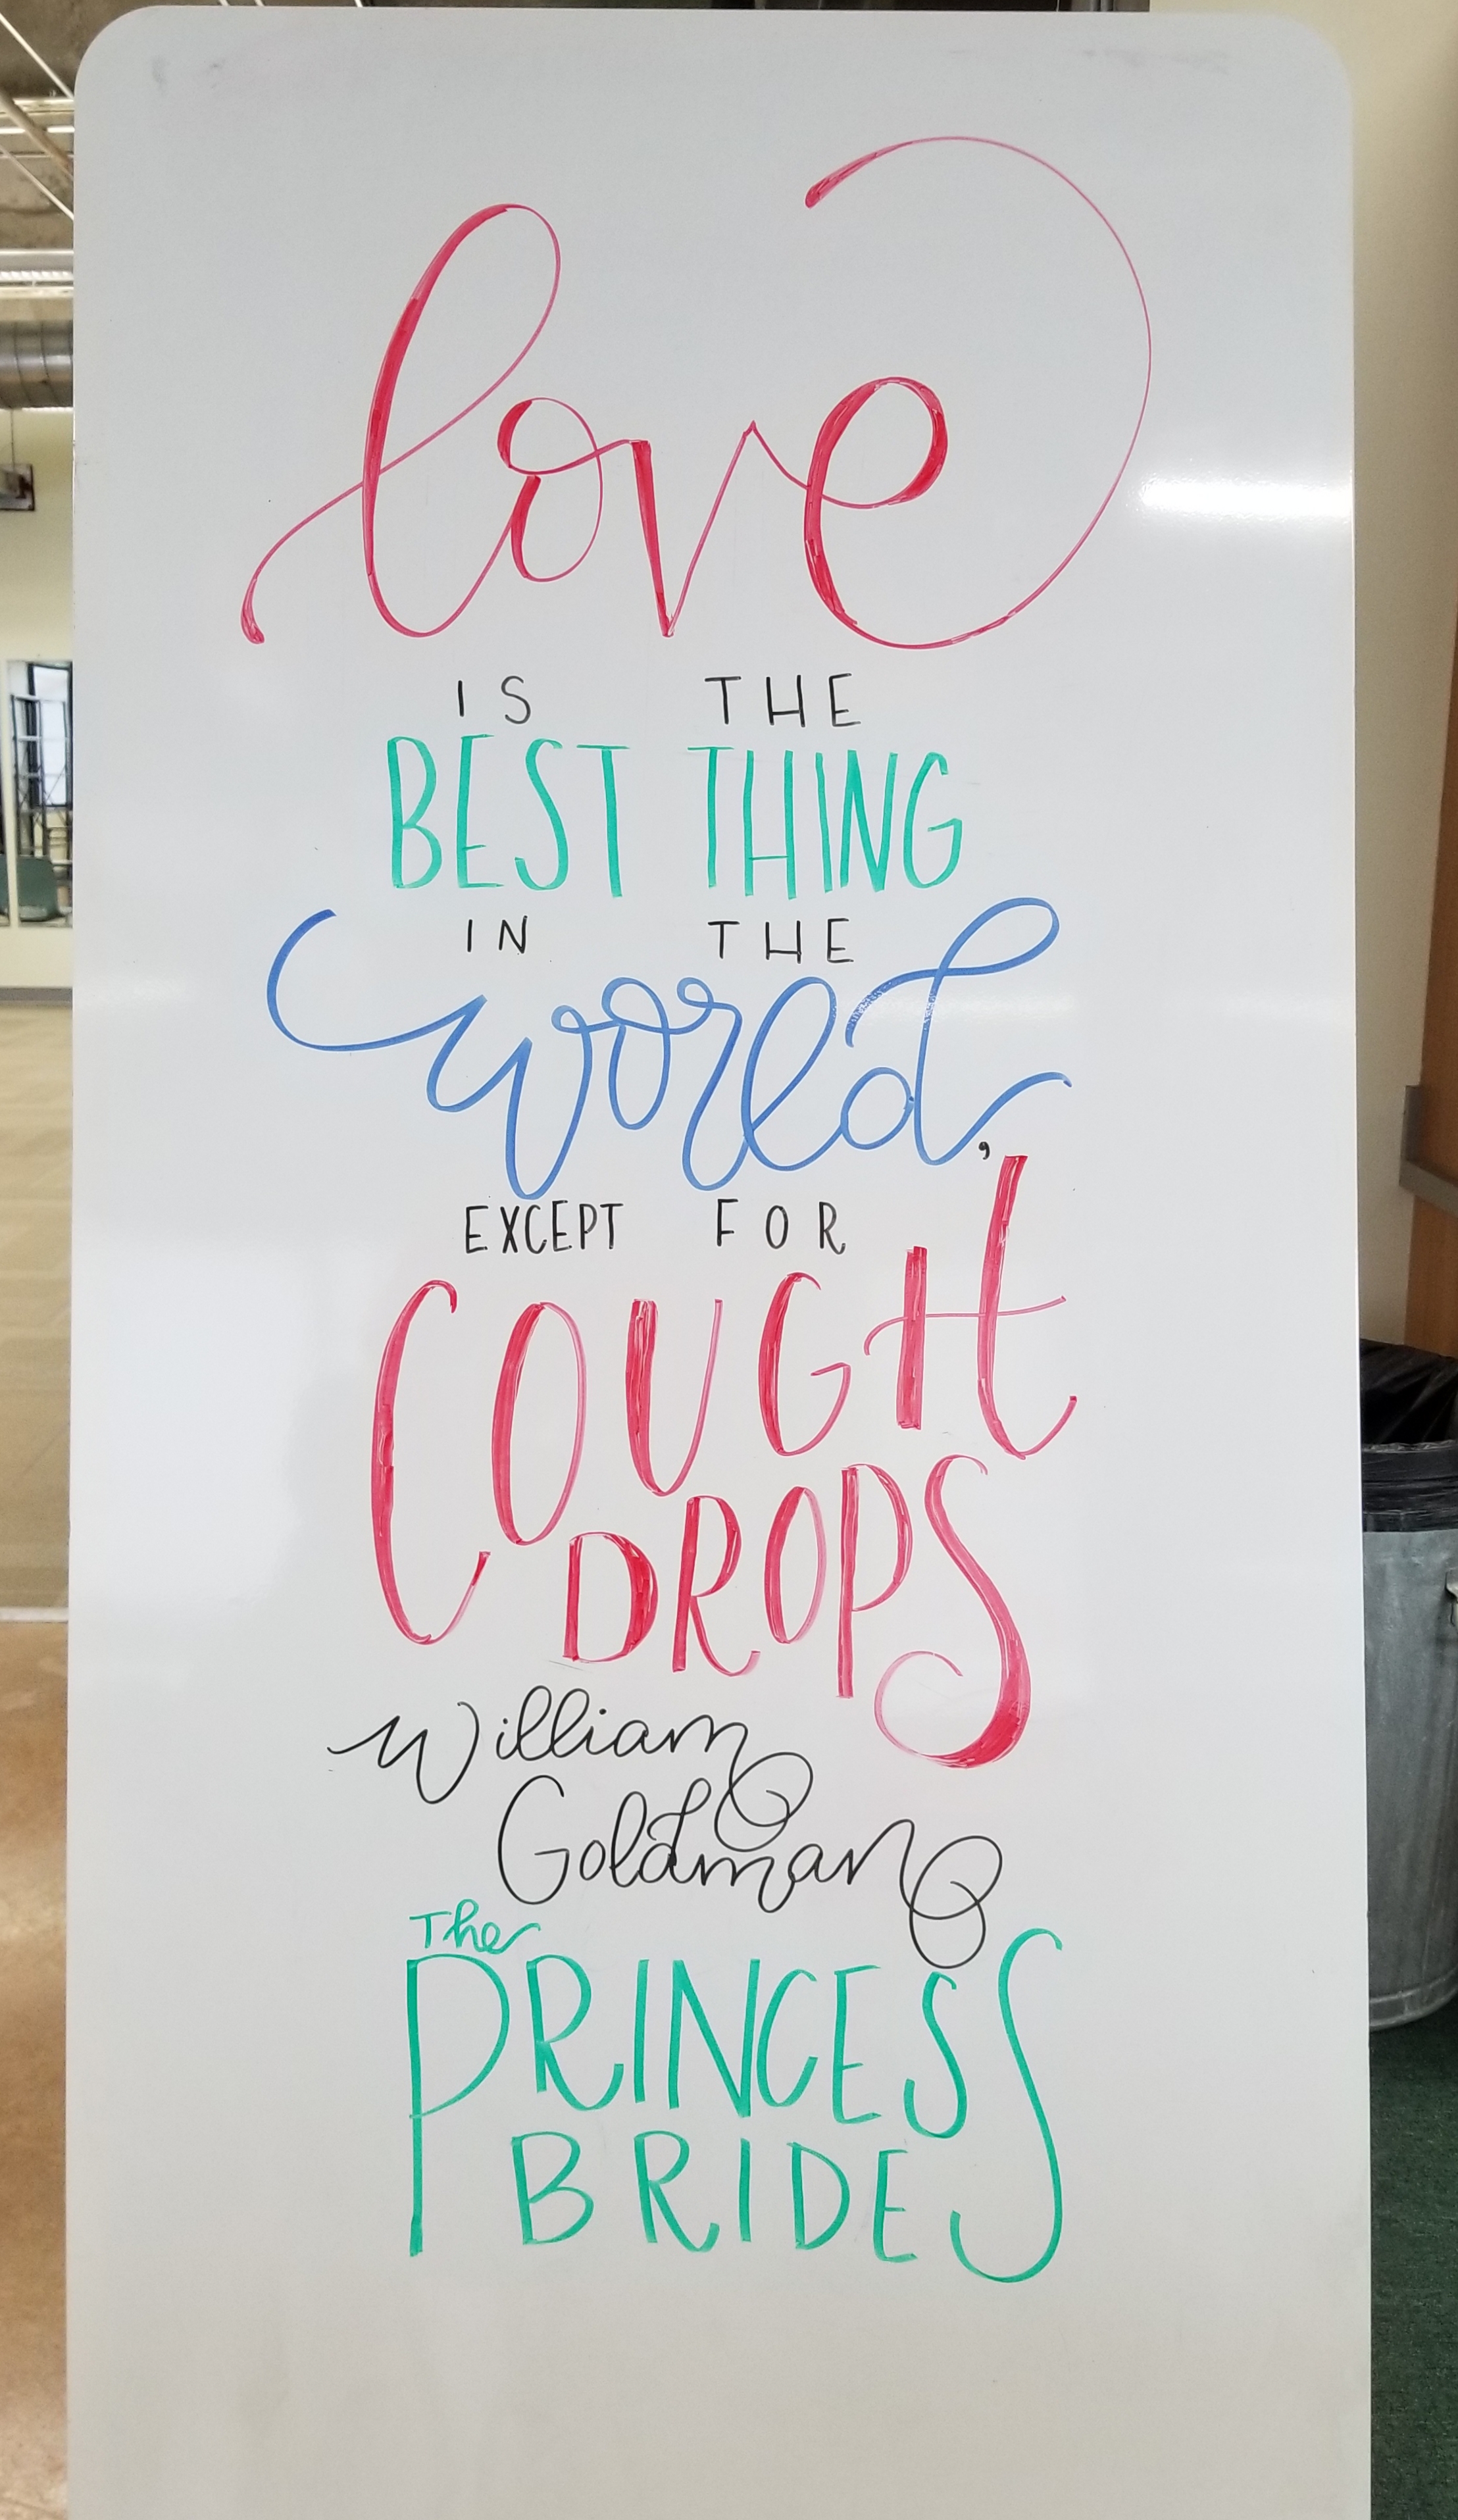 love
IS THE
BEST THING
IN THE
world,
EXCEPT FOR
COUGH
DROPS
William
Goldman
The
PRINCESS
BRIDE